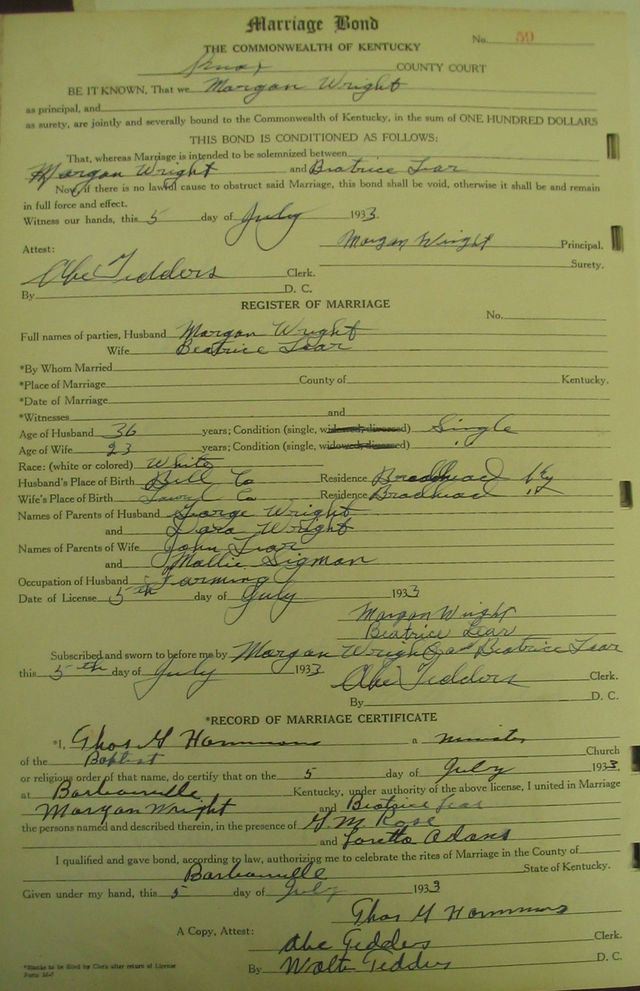 Marriage Bond
No. 59
THE COMMONWEALTH OF KENTUCKY
Knox COUNTY COURT
BE IT KNOWN, That we Morgan Wright
as principal, and
as surety, are jointly and severally bound to the Commonwealth of Kentucky, in the sum of ONE HUNDRED DOLLARS
THIS BOND IS CONDITIONED AS FOLLOWS:
That, whereas Marriage is intended to be solemnized between
Morgan Wright and Beatrice Lear
Now, if there is no lawful cause to obstruct said Marriage, this bond shall be void, otherwise it shall be and remain
in full force and effect.
Witness our hands, this 5 day of July 1933.
Morgan Wright Principal.
Attest: Surety.
Abe Tedders Clerk.
By D. C.
REGISTER OF MARRIAGE
No.
Full names of parties, Husband Morgan Wright
Wife Beatrice Lear
*By Whom Married
*Place of Marriage County of Kentucky.
*Date of Marriage
*Witnesses and
Age of Husband 36 years; Condition (single, widowed, divorced) Single
Age of Wife 23 years; Condition (single, widowed, divorced) "
Race: (white or colored) White
Husband's Place of Birth Bell Co Residence Brodhead Ky
Wife's Place of Birth Co Residence Brodhead "
Names of Parents of Husband George Wright
and Wright
Names of Parents of Wife John Lear
and Mollie Sigman
Occupation of Husband Farming
Date of License 5th day of July 1933
Morgan Wright
Beatrice Lear
Subscribed and sworn to before me by Morgan Wright and Beatrice Lear
this 5th day of July 1933 Abe Tedders Clerk.
By D. C.
*RECORD OF MARRIAGE CERTIFICATE
*I, Thos G Hammons a minister
of the Baptist Church
or religious order of that name, do certify that on the 5 day of July 1933.
at Barbourville Kentucky, under authority of the above license, I united in Marriage
Morgan Wright and Beatrice Lear
the persons named and described therein, in the presence of G. M. Rose
and Loretta Adams
I qualified and gave bond, according to law, authorizing me to celebrate the rites of Marriage in the County of
Barbourville State of Kentucky.
Given under my hand, this 5 day of July 1933
Thos G Hammons
A Copy, Attest: Abe Tedders Clerk.
By Walter Tedders D. C.
*Blanks to be filled by Clerk after return of License